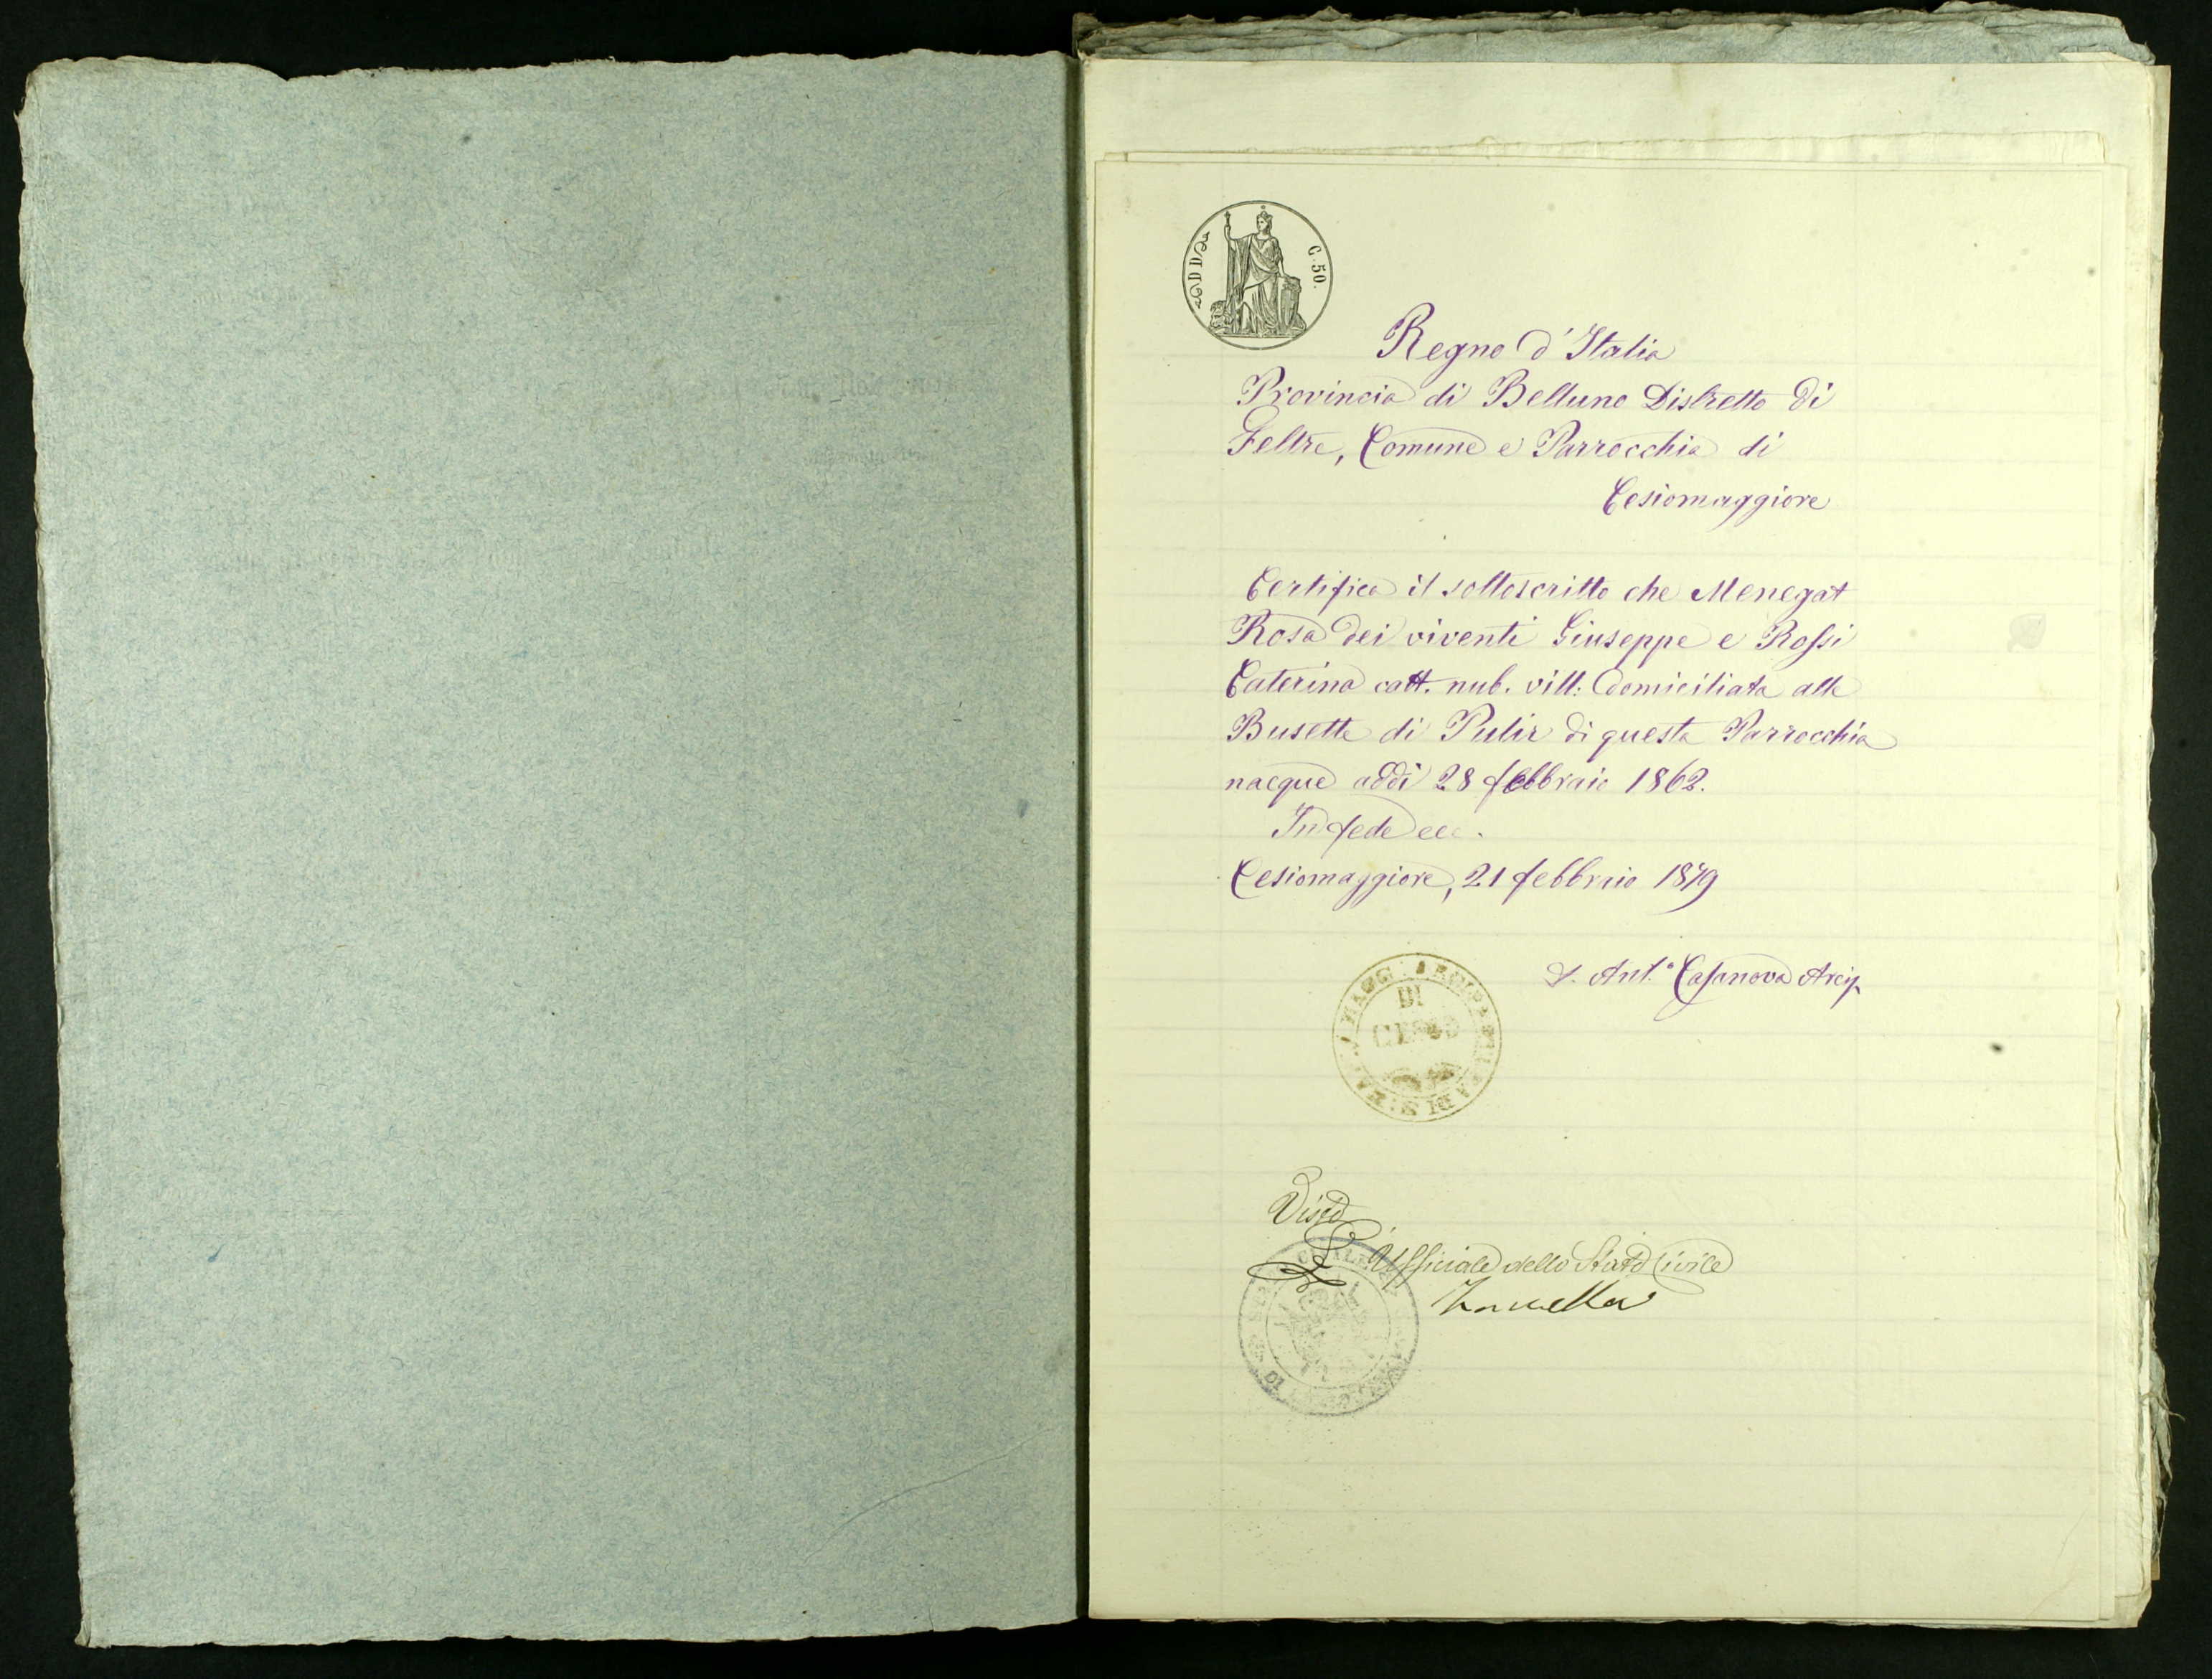 C. 50.
Regno d'Italia
Provincia di Belluno Distretto di
Feltre, Comune e Parrocchia di
Cesiomaggiore
Certifica il sottoscritto che Menegat
Rosa dei viventi Giuseppe e Rossi
Caterina catt. nub. vill: domiciliata alla
Busetta di Pulir di questa Parrocchia
nacque addì 28 febbraio 1862.
In fede ecc.
Cesiomaggiore, 21 febbraio 1879
D. Ant.o Casanova Arcip
DI
CESIO
Visto
L'Ufficiale dello Stato Civile